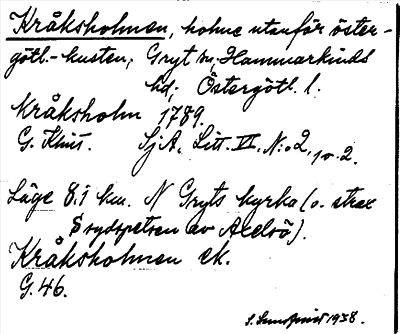 Kråksholmen, holme utanför öster-
götl.-kusten, Gryt sn, Hammarkinds
hd, Östergötl. l.
Kråksholm 1789.
G. Khus. SjA, Litt. VI, N:o 2, 10-2.
Läge 8.1 km. N Gryts kyrka (o. strax
S sydspetsen av Axelsö).
Kråksholmen ek.
G. 46.
S. Sundqvist 1938.